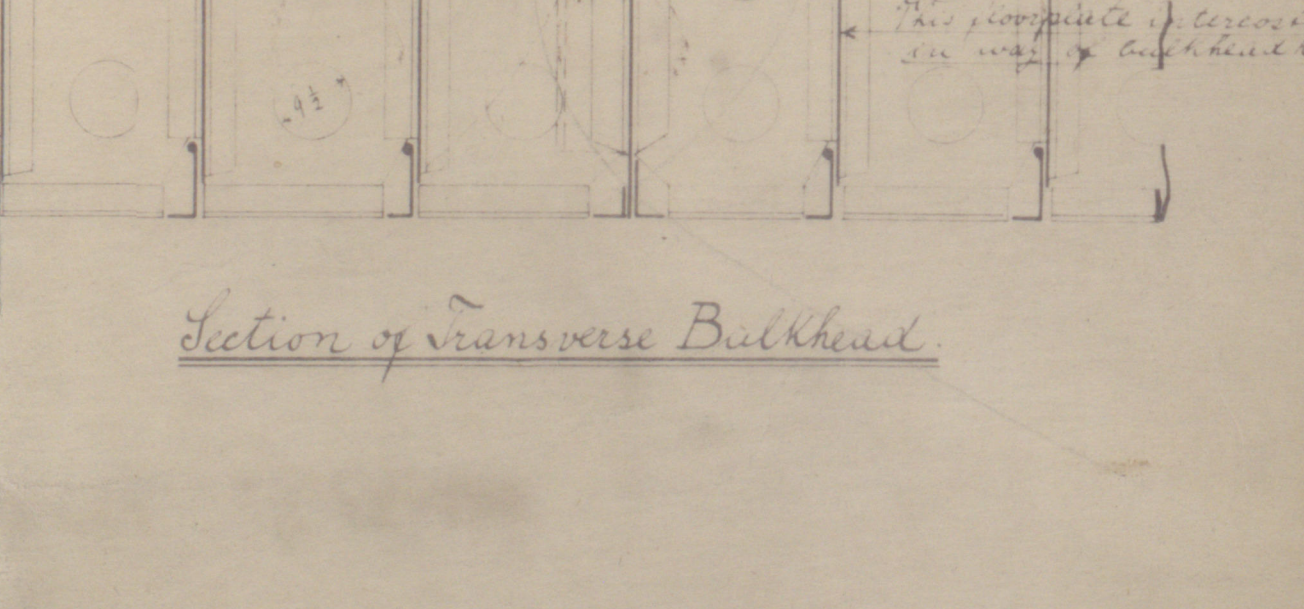 This floorplate intercos
in way of bulkhead
9½
Section of Transverse Bulkhead.